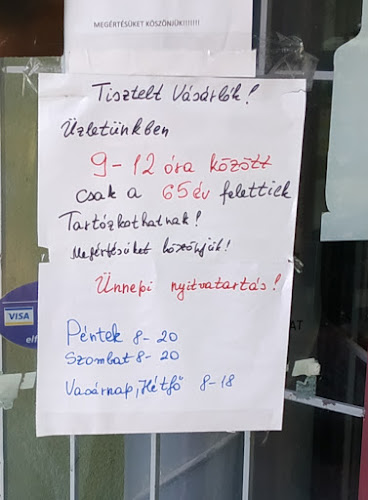 MEGÉRTÉSÜKET KÖSZÖNJÜK!!!!!!!
Tisztelt Vásárlók!
Üzletünkben
9-12 óra között
csak a 65 év felettiek
Tartózkothatnak!
Megértésüket köszönjük!
Ünnepi nyitvatartás!
VISA
elf
Péntek 8-20
Szombat 8-20
Vasárnap, Hétfő 8-18